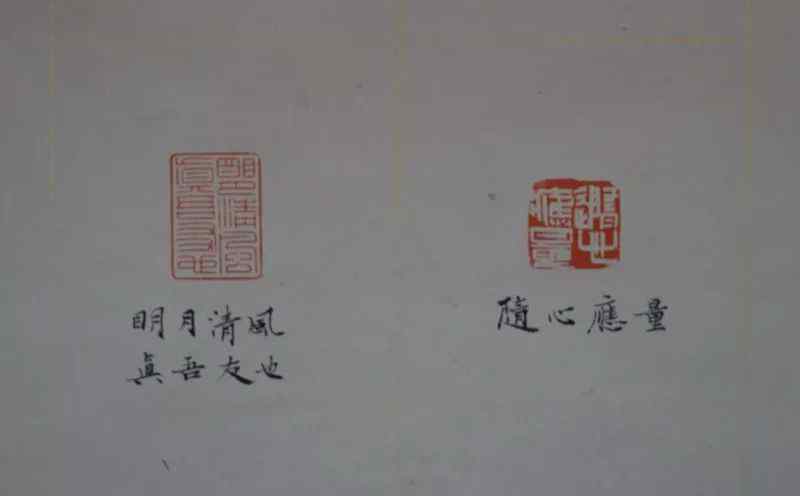 明月清風
眞吾友也
隨心應量